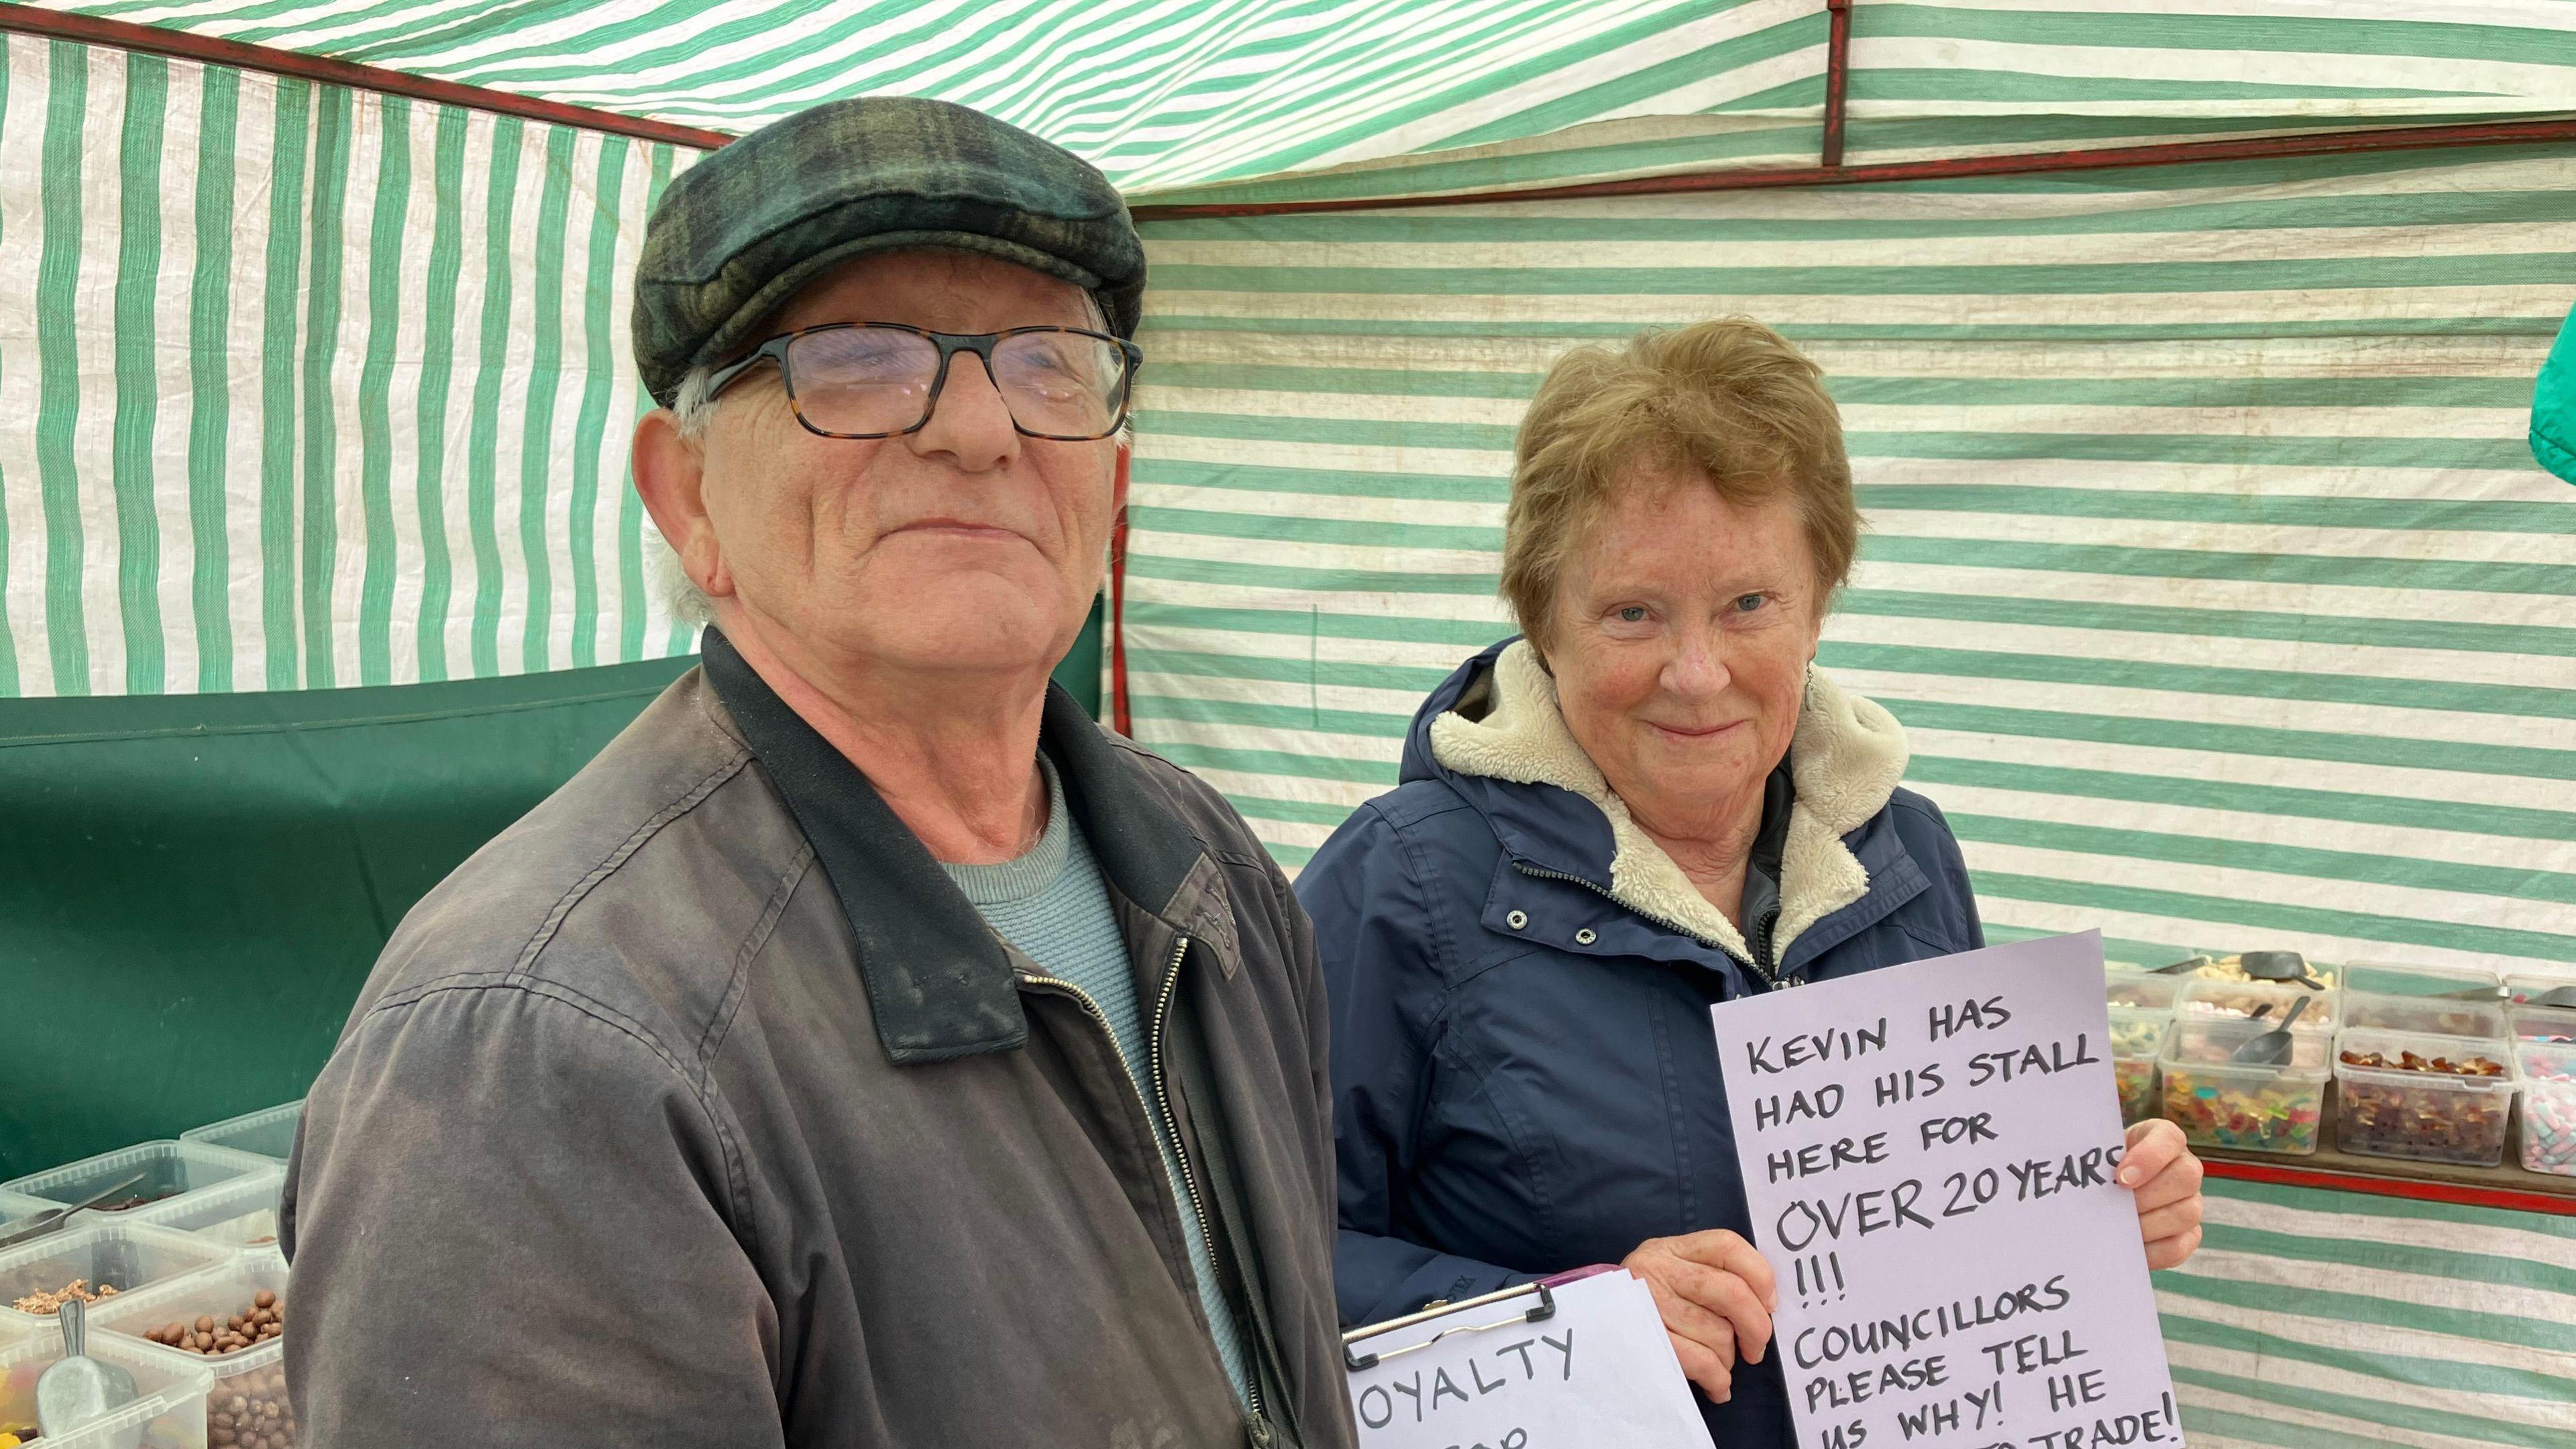 KEVIN HAS
HAD HIS STALL
HERE FOR
OVER 20 YEARS
!!!
COUNCILLORS
PLEASE TELL
US WHY! HE
TRADE!
OYALTY